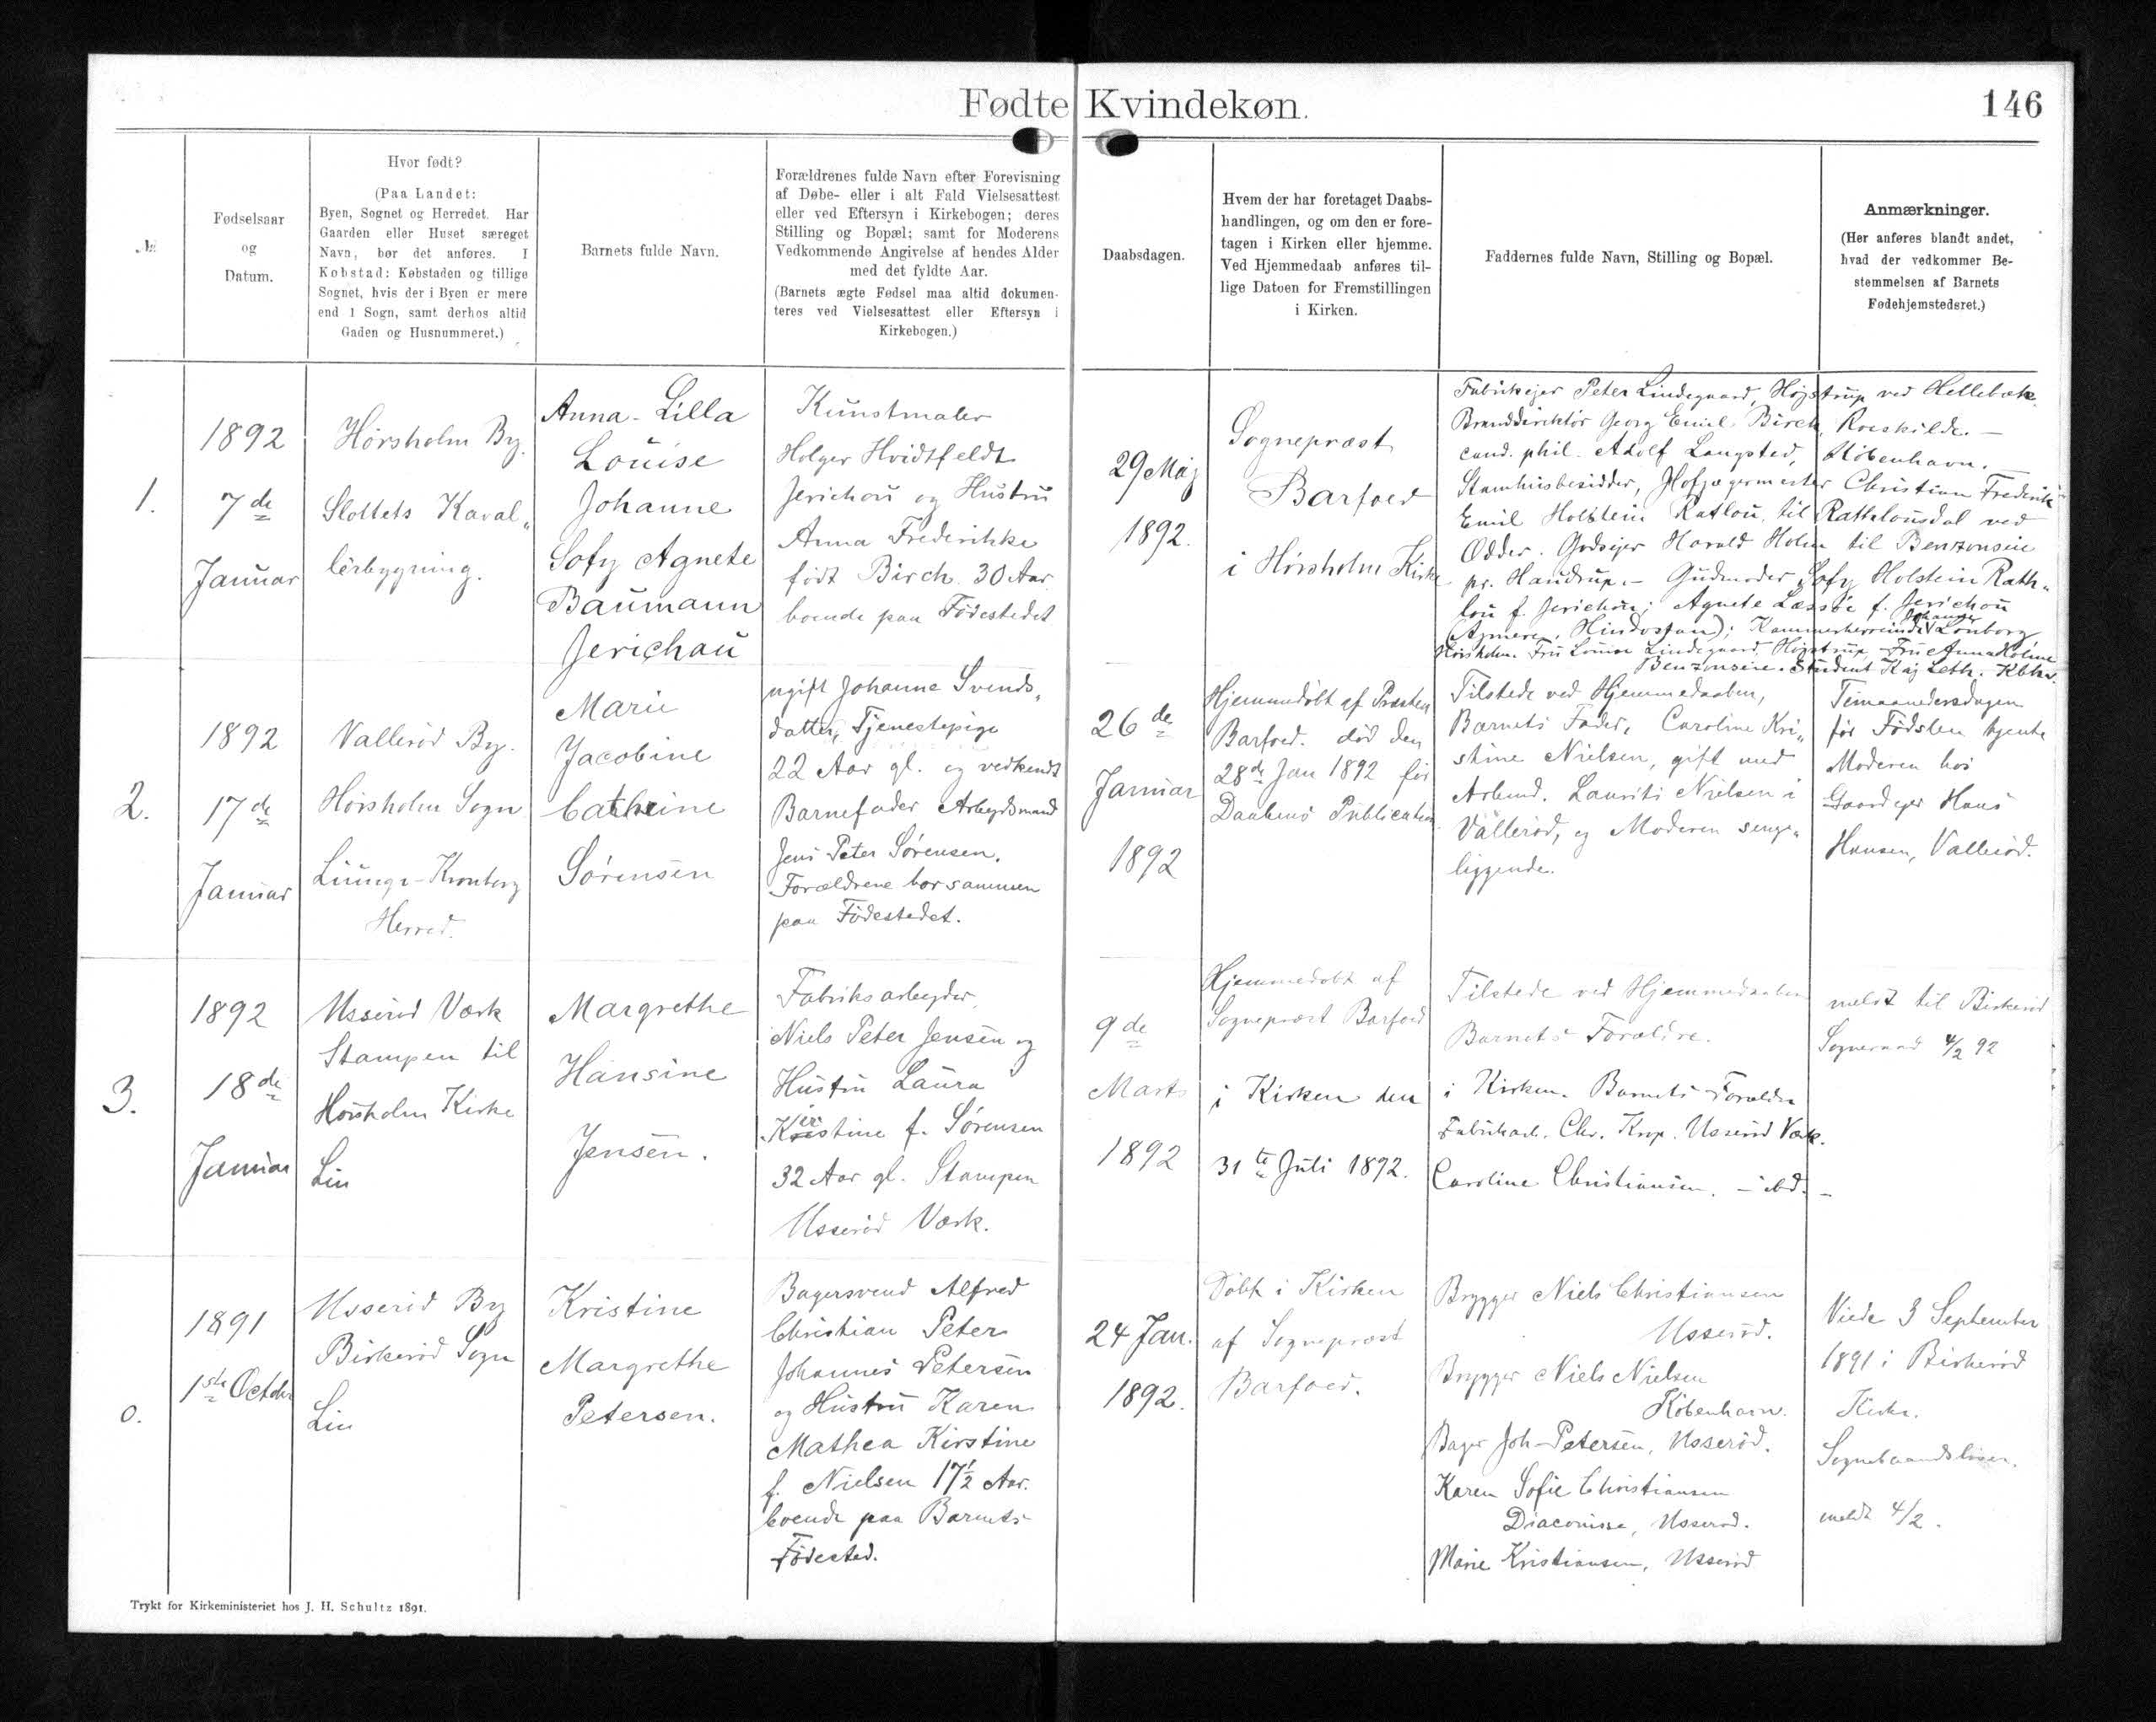 Fødte Kvindekøn.
146
№
Fødselsaar
og
Datum.
Hvor født?
(Paa Landet:
Byen, Sognet og Herredet. Har
Gaarden eller Huset særeget
Navn, bør det anføres. I
Købstad: Købstaden og tillige
Sognet, hvis der i Byen er mere
end 1 Sogn, samt derhos altid
Gaden og Husnummeret.)
Barnets fulde Navn.
Forældrenes fulde Navn efter Forevisning
af Døbe- eller i alt Fald Vielsesattest
eller ved Eftersyn i Kirkebogen; deres
Stilling og Bopæl; samt for Moderens
Vedkommende Angivelse af hendes Alder
med det fyldte Aar.
(Barnets ægte Fødsel maa altid dokumen-
teres ved Vielsesattest eller Eftersyn i
Kirkebogen.)
Daabsdagen.
Hvem der har foretaget Daabs-
handlingen, og om den er fore-
tagen i Kirken eller hjemme.
Ved Hjemmedaab anføres til-
lige Datoen for Fremstillingen
i Kirken.
Faddernes fulde Navn, Stilling og Bopæl.
Anmærkninger.
(Her anføres blandt andet,
hvad der vedkommer Be-
stemmelsen af Barnets
Fødehjemstedsret.)
1.
1892
7de
Januar
Hørsholm By.
Slottets Kaval„
lerbygning.
Anna-Lilla
Louise
Johanne
Sofy Agnete
Baumann
Jerichau
Kunstmaler
Holger Hvidtfeldt
Jerichau og Hustru
Anna Frederikke
født Birch. 30 Aar
boende paa Fødestedet
29 Maj
1892.
Sognepræst
Barfoed
i Hørsholm Kirke
Fabrikejer Peter Lindegaard, Højstrup ved Hellebæk.
Branddirektør Georg Emil Birch, Roeskilde. —
cand. phil. Adolf Langsted, København.
Stamhusbesidder, Hofjægermester Christian Frederik
Emil Holstein Rathlou, til Rathlousdal ved
Odder. Godsejer Harald Holm til Benzonseie
pr. Haudrup. — Gudmoder Sofy Holstein Rath„
lou f. Jerichau; Agnete Læssøe f. Jerichau
(Agmere, Hindostan); Kammerherreinde Johanne Lønborg
Hørsholm. Fru Louise Lindegaard, Højstrup, Fru Anna Holme
Benzonseie. Student Kaj Leth. Kbhv.
2.
1892
17de
Januar
Vallerød By.
Hørsholm Sogn
Liunge-Kronborg
Herred.
Marie
Jacobine
Cathrine
Sørensen
ugift Johanne Svends„
datter, Tjenestepige
22 Aar gl. og vedkendt
Barnefader Arbejdsmand
Jens Peter Sørensen.
Forældrene bor sammen
paa Fødestedet.
26de
Januar
1892
Hjemmedøbt af Præsten
Barfoed. død den
28de Jan 1892 før
Daabens Publication
Tilstede ved Hjemmedaaben,
Barnets Fader, Caroline Kri„
stine Nielsen, gift med
Arbmd. Laurits Nielsen i
Vallerød, og Moderen senge„
liggende.
Timaanedersdagen
før Fødslen tjente
Moderen hos
Gaardejer Hans
Hansen, Vallerød.
3.
1892
18de
Januar
Usserød Værk
Stampen til
Hørsholm Kirke
Lin
Margrethe
Hansine
Jensen.
Fabriksarbejder
Niels Peter Jensen og
Hustru Laura
Kirstine f. Sørensen
32 Aar gl. Stampen
Usserød Værk.
9de
Marts
1892
Hjemmedøbt af
Sognepræst Barfoed
i Kirken den
31te Juli 1892.
Tilstede ved Hjemmedaaben
Barnets Forældre.
i Kirken. Barnets Forældre
Fabrikarb. Chr. Krop. Usserød Værk.
Caroline Christiansen. — ibd. —
meldt til Birkerød
Sogneraad 4/2 92
0.
1891
1ste Octobr
Usserød By
Birkerød Sogn
Lin
Kristine
Margrethe
Petersen.
Bagersvend Alfred
Christian Peter
Johannes Petersen
og Hustru Karen
Mathea Kirstine
f. Nielsen 17½ Aar.
boende paa Barnets
Fødested.
24 Jan.
1892.
Døbt i Kirken
af Sognepræst
Barfoed.
Brygger Niels Christiansen
Usserød.
Brygger Niels Nielsen
København.
Bager Joh-Petersen, Usserød.
Karen Sofie Christiansen
Diaconisse, Usserød.
Marie Kristiansen, Usserød
Viede 3 September
1891 i Birkerød
Kirke.
Sognebaandsløser.
meldt 4/2.
Trykt for Kirkeministeriet hos J. H. Schultz 1891.